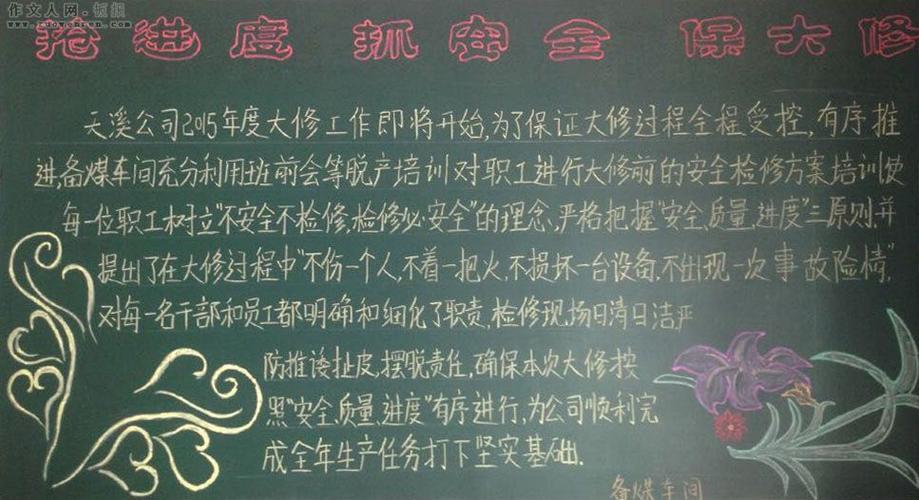 作文人网·板报
www.zuowenren.com
抢进度 抓安全 保大修
天溪公司2015年度大修工作即将开始,为了保证大修过程全程受控,有序推
进,备煤车间充分利用班前会等脱产培训对职工进行大修前的安全检修方案培训使
每一位职工树立"不安全不检修,检修必安全"的理念,严格把握"安全,质量,进度"三原则,并
提出了在大修过程中"不伤一个人,不着一把火,不损坏一台设备,不出现一次事故险情",
对每一名干部和员工都明确和细化了职责,检修现场日清日洁严
防推诿扯皮,摆脱责任,确保本次大修按
照"安全,质量,进度"有序进行,为公司顺利完
成全年生产任务打下坚实基础.
备煤车间